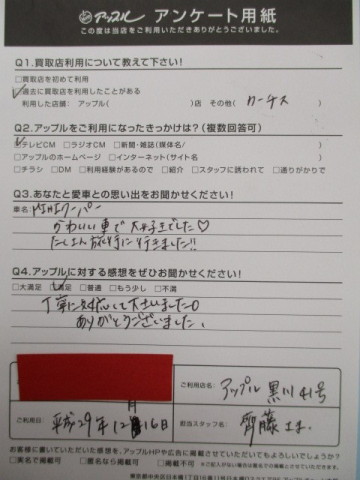 アップル アンケート用紙
この度は当店をご利用いただきありがとうございました。
Q1.買取店利用について教えて下さい!
□買取店を初めて利用
□過去に買取店を利用したことがある
利用した店舗: アップル( )店 その他( カーチス
Q2.アップルをご利用になったきっかけは?(複数回答可)
□テレビCM □ラジオCM □新聞・雑誌(媒体名/ )
□アップルのホームページ □インターネット(サイト名 )
□チラシ □DM □利用経験があるので □紹介 □スタッフに誘われて □通りがかりで
Q3.あなたと愛車との思い出をお聞かせください!
車名: MINIクーパー
かわいい車で大好きでした♡
たくさん旅行に行きました!!
Q4.アップルに対する感想をぜひお聞かせください!
□大満足 □満足 □普通 □もう少し □不満
丁寧に対応して下さいました。
ありがとうございました。
ご利用店名: アップル 黒川41号
ご利用日: 平成29年12月16日
担当スタッフ名: 齊藤さま
お客様に書いていただいた感想を、アップルHPや広告に掲載させていただいてもよろしいでしょうか?
□実名で掲載可 □匿名なら掲載可 □掲載不可 ※ご記入がない場合は匿名での掲載とさせていただきます。